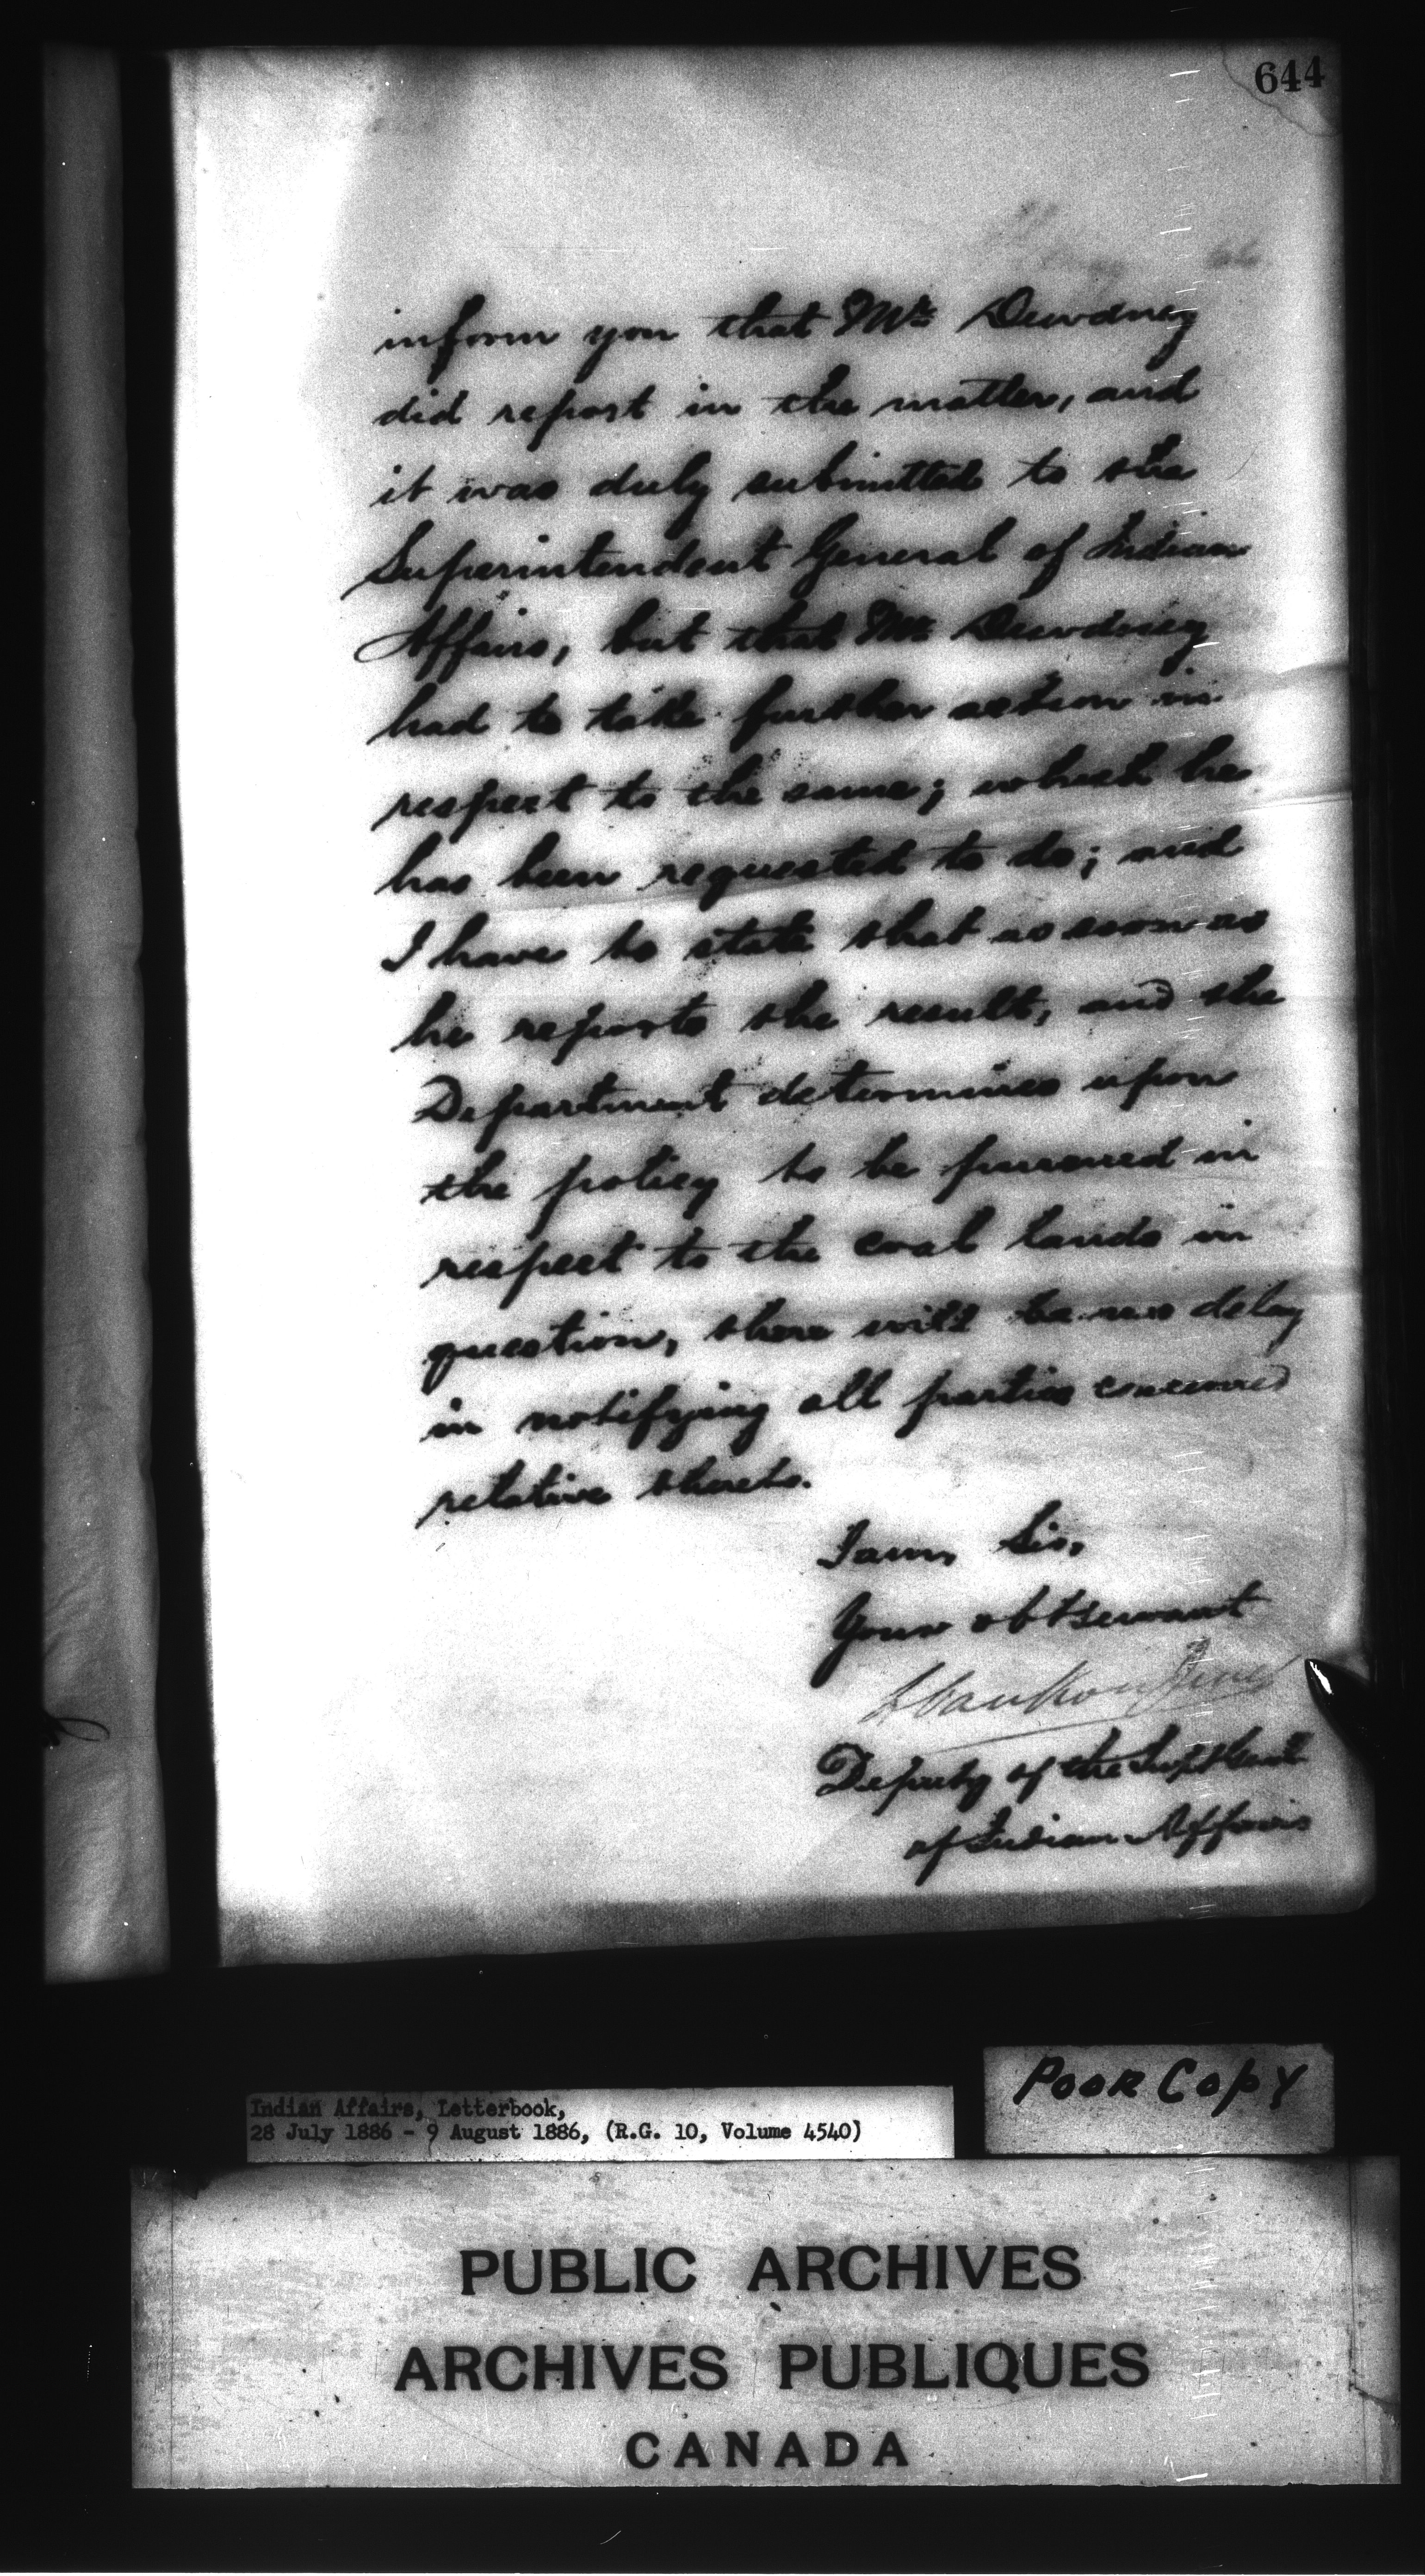 644
inform you that Mr. Dewdney
did report in the matter, and
it was duly submitted to the
Superintendent General of Indian
Affairs, but that Mr. Dewdney
had to take further action in
respect to the same; which he
has been requested to do; and
I have to state that as soon as
he reports the result, and the
Department determines upon
the policy to be pursued in
respect to the coal lands in
question, there will be no delay
in notifying all parties concerned
relative thereto.
I am, Sir,
Your obt servant
L Vankoughnet
Deputy of the Supt Genl
of Indian Affairs
POOR COPY
Indian Affairs, Letterbook,
28 July 1886 - 9 August 1886, (R.G. 10, Volume 4540)
PUBLIC ARCHIVES
ARCHIVES PUBLIQUES
CANADA